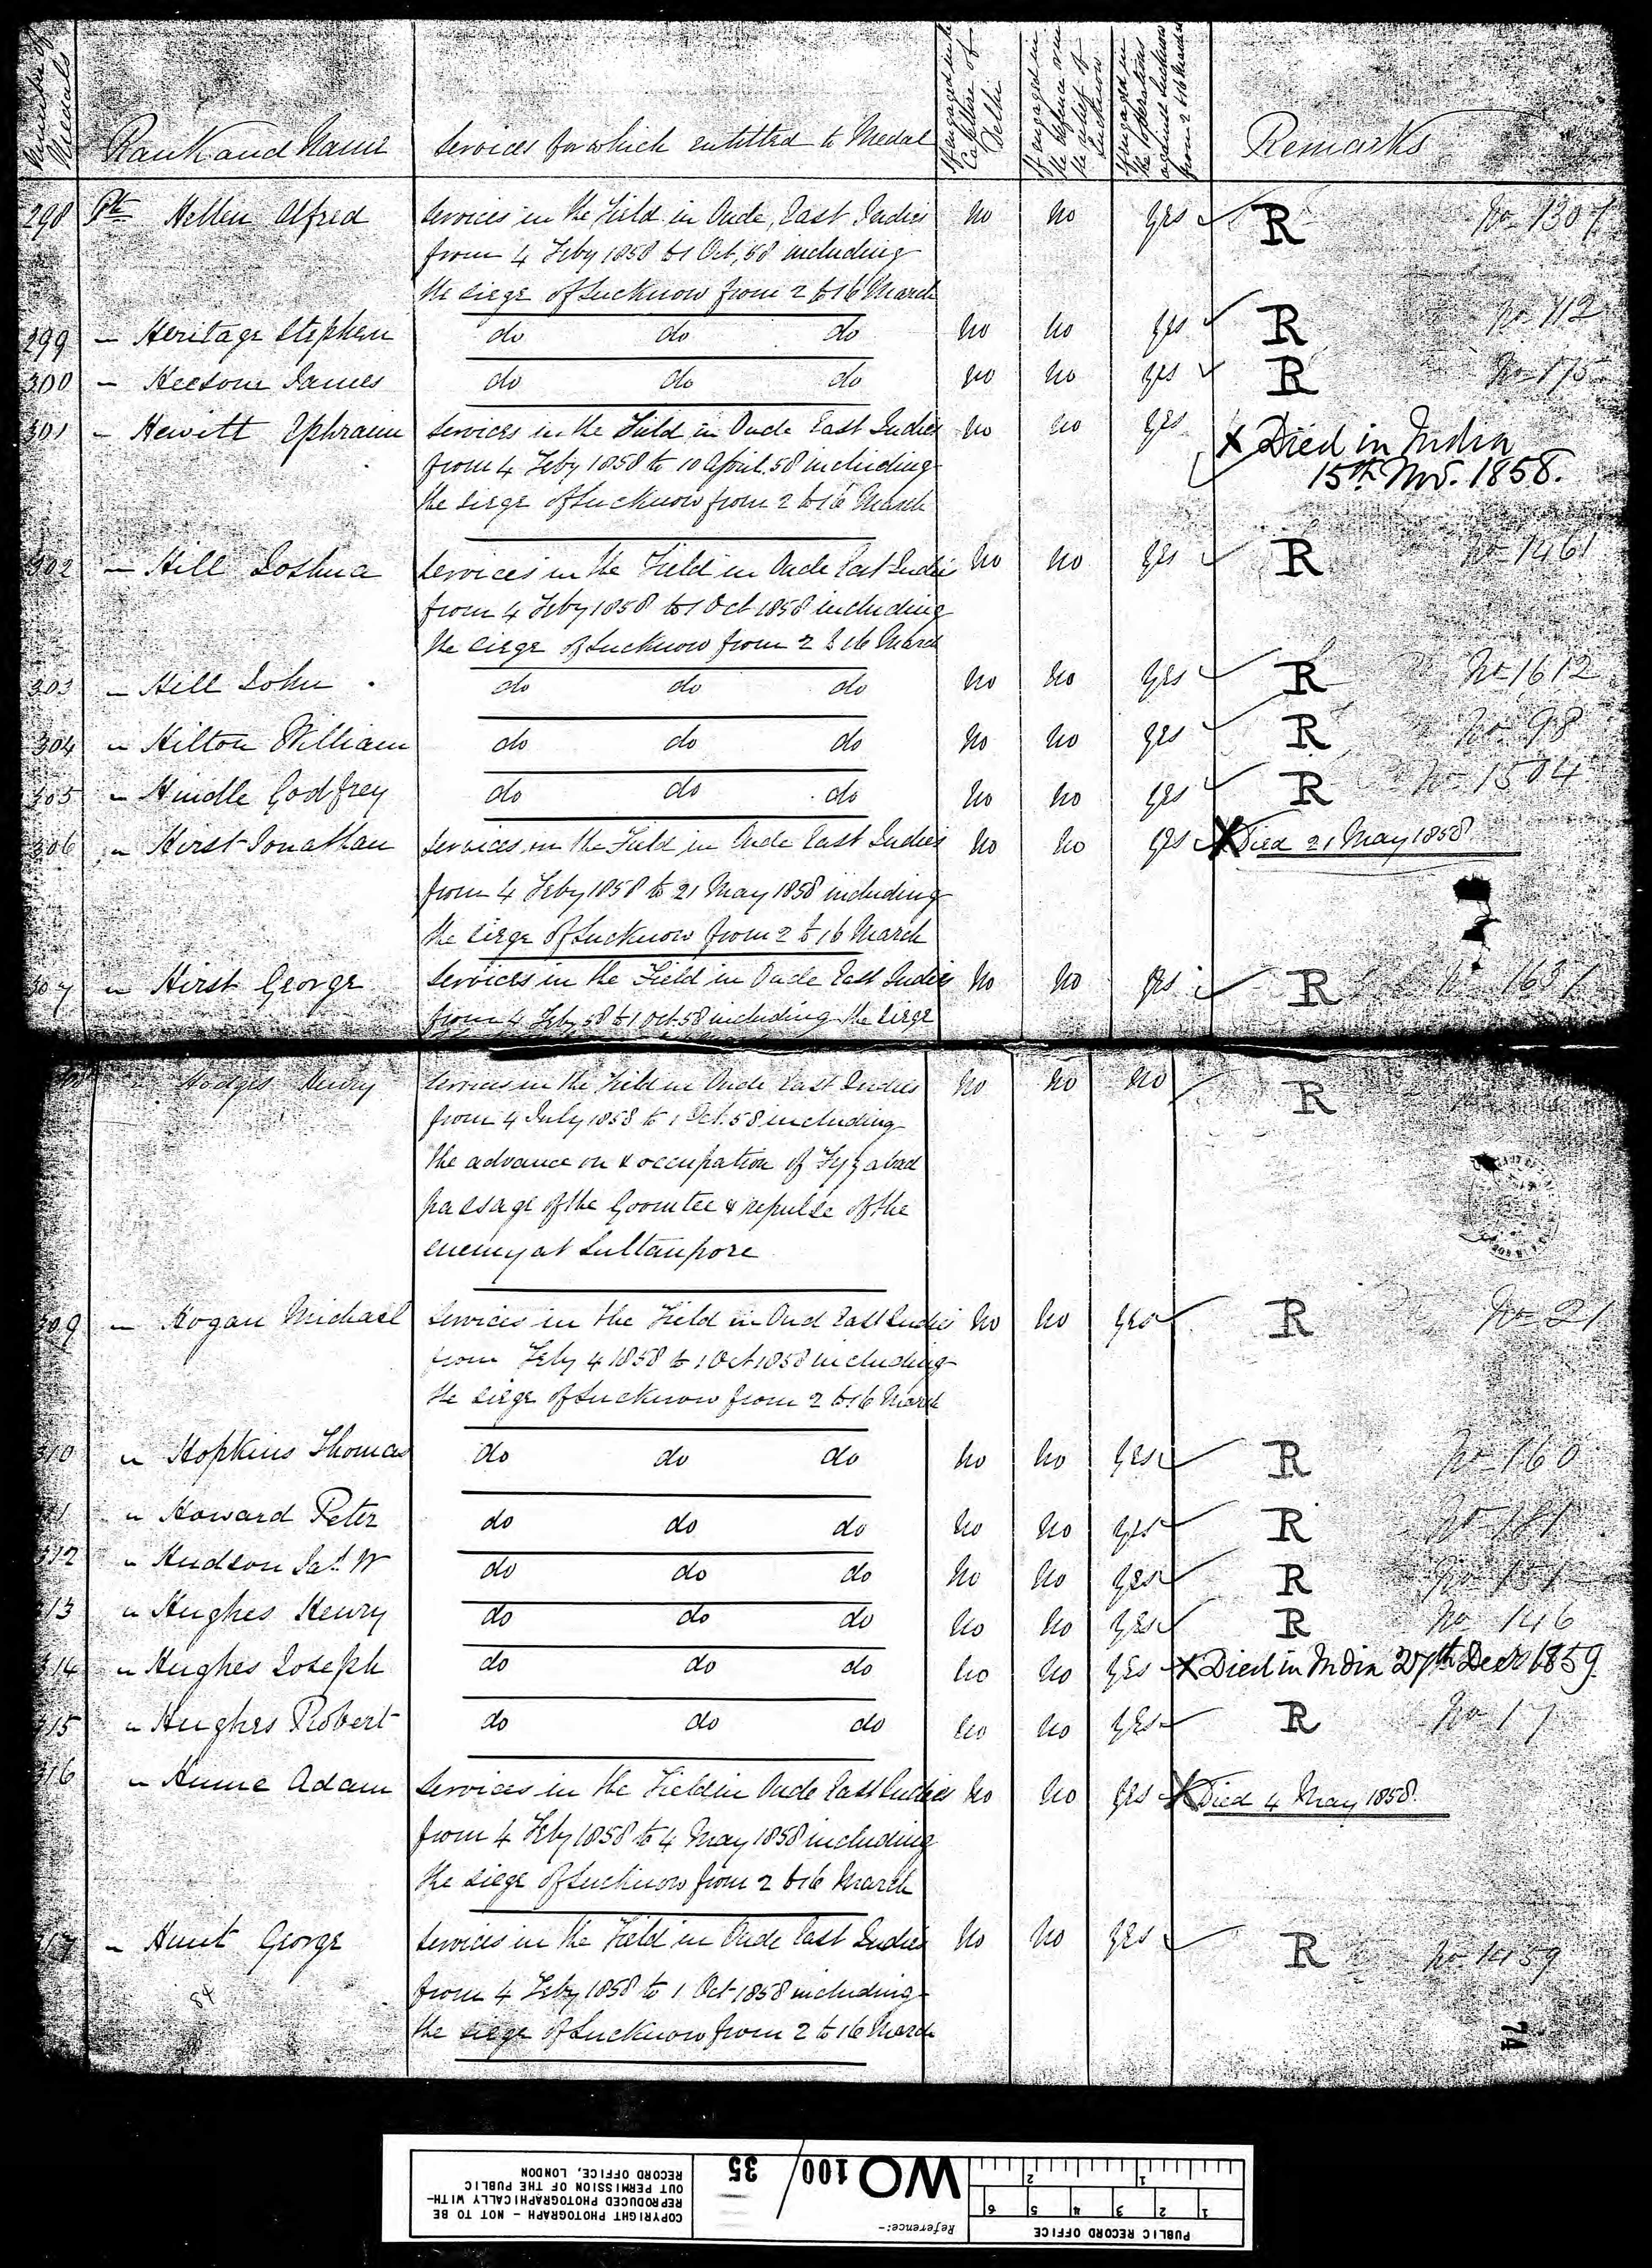 Number of Medals
Rank and Name
Services for which entitled to Medal
If engaged in the Capture of Delhi
If engaged in the defence or in the relief of Lucknow
If engaged in the operations against Lucknow from 2 to 16 March
Remarks
298 Pte Hellen Alfred Services in the Field in Oude, East Indies No No Yes R No 1307
from 4 Feby 1858 to 1 Oct, 58 including
the siege of Lucknow from 2 to 16 March
299 " Heritage Stephen do do do No No Yes R No 112
300 " James do do do No No Yes R No 175
301 " Hewitt Ephraim Services in the Field in Oude East Indies No No Yes X Died in India
from 4 Feby 1858 to 10 April. 58 including 15th Nov. 1858.
the siege of Lucknow from 2 to 16 March
302 " Hill Joshua Services in the Field in Oude East Indies No No Yes R No 1461
from 4 Feby 1858 to 1 Oct 1858 including
the siege of Lucknow from 2 to 16 March
303 " Hill John do do do No No Yes R No 1612
304 " Hilton William do do do No No Yes R No 98
305 " Hindle Godfrey do do do No No Yes R No 1504
306 " Hirst Jonathan Services in the Field in Oude East Indies No No Yes X Died 21 May 1858
from 4 Feby 1858 to 21 May 1858 including
the siege of Lucknow from 2 to 16 March
307 " Hirst George Services in the Field in Oude East Indies No No Yes R
from 4 Feby 58 to 1 Oct 58 including the siege
" Hodges Henry Services in the Field in Oude East Indies No No No R
from 4 July 1858 to 1 Oct. 58 including
the advance on & occupation of Fyzabad
passage of the Goomtee & repulse of the
enemy at Sultanpore
309 " Hogan Michael Services in the Field in Oud East Indies No No Yes R No 21
from Feby 4 1858 to 1 Oct 1858 including
the siege of Lucknow from 2 to 16 March
310 " Hopkins Thomas do do do No No Yes R No 160
11 " Howard Peter do do do No No Yes R No 181
312 " Hudson Jas. W do do do No No Yes R
313 " Hughes Henry do do do No No Yes R No 146
314 " Hughes Joseph do do do No No Yes X Died in India 27th Decr 1859
315 " Hughes Robert do do do No No Yes R No 17
316 " Hume Adam Services in the Field in Oude East Indies No No Yes X Died 4 May 1858.
from 4 Feby 1858 to 4 May 1858 including
the siege of Lucknow from 2 to 16 March
317 " Hunt George Services in the Field in Oude East Indies No No Yes R No 1459
from 4 Feby 1858 to 1 Oct 1858 including
84
the siege of Lucknow from 2 to 16 March
74
PUBLIC RECORD OFFICE
1 2 3 4 5 6
1 2
Reference:-
WO 100/35
COPYRIGHT PHOTOGRAPH - NOT TO BE
REPRODUCED PHOTOGRAPHICALLY WITH-
OUT PERMISSION OF THE PUBLIC
RECORD OFFICE, LONDON